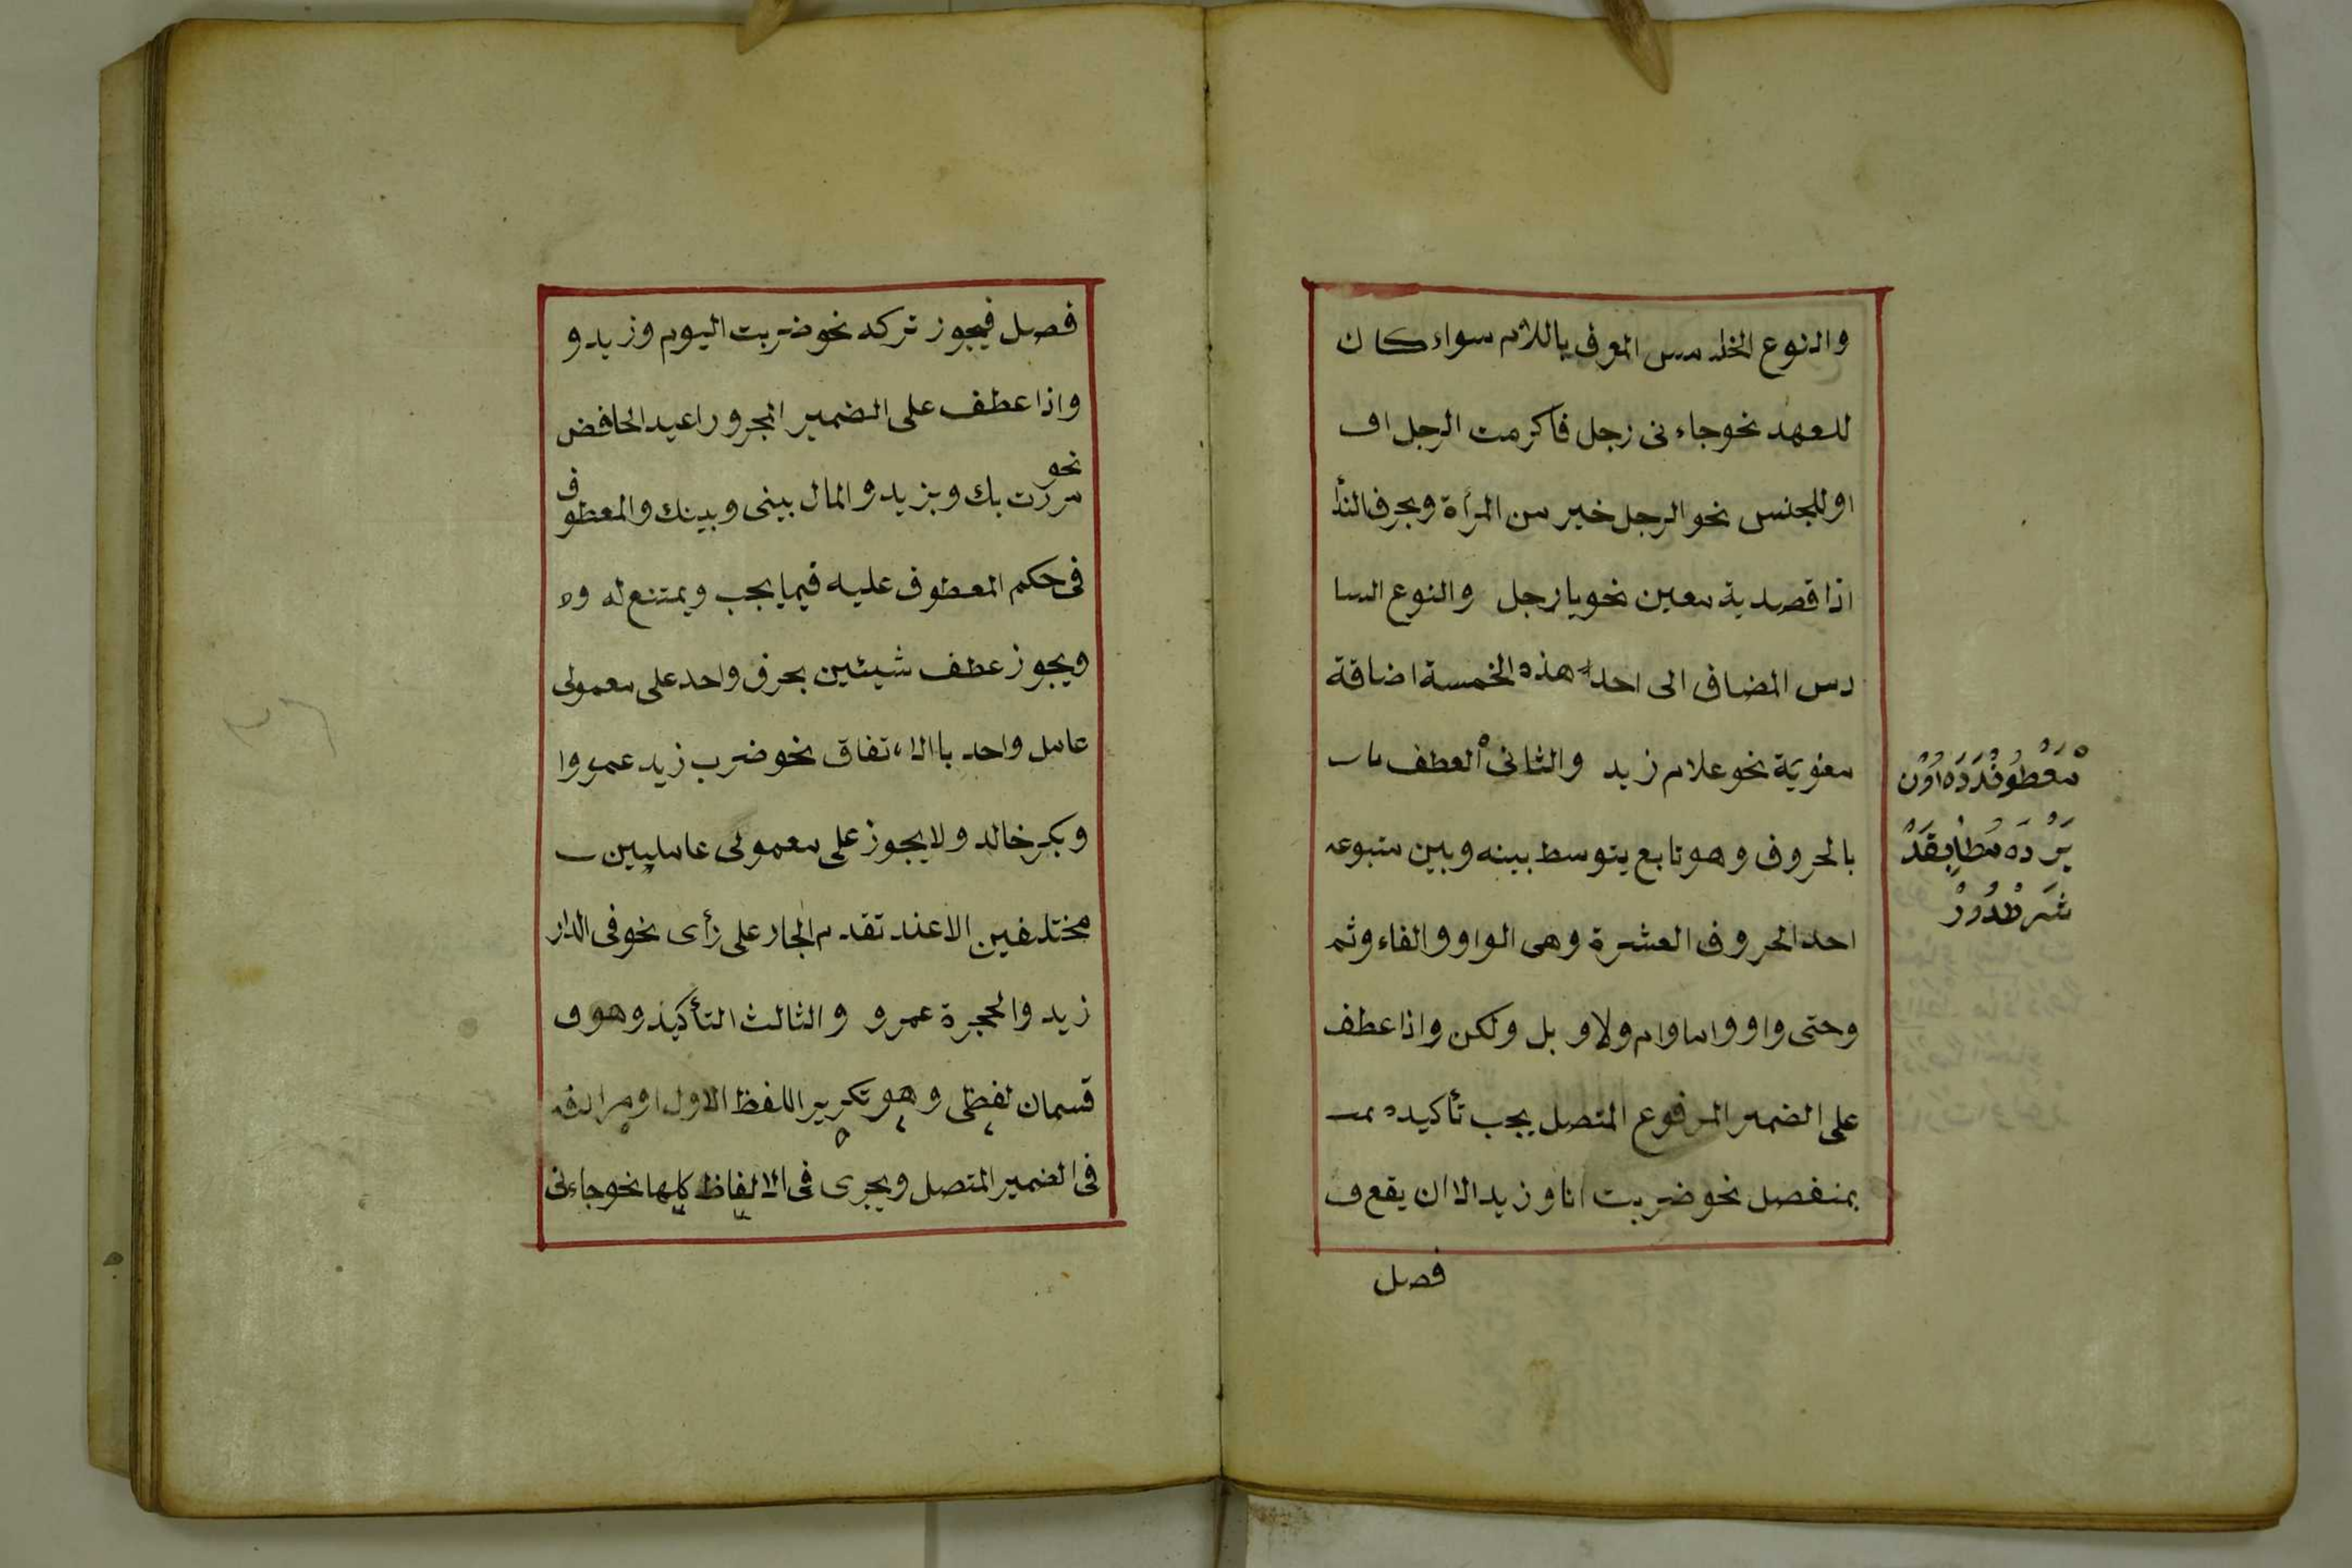 والنوع الخامس المعرف باللام سواء كان
للعهد نحو جاءنى رجل فاكرمت الرجل او
او للجنس نحو الرجل خير من المرأة وبحرف الندا
اذا قصد به معين نحو يا رجل والنوع السا
دس المضاف الى احد هذه الخمسة اضافة
معنوية نحو غلام زيد والثانى العطف با
بالحروف وهو تابع يتوسط بينه وبين متبوعه
احد الحروف العشرة وهى الواو والفاء وثم
وحتى واو واما وام ولا وبل ولكن واذا عطف
على الضمير المرفوع المتصل يجب تأكيده بم
بمنفصل نحو ضربت انا وزيد الا ان يقع ف
فصل
معطوفدده اون
يرده مطابقد
شرطدور
فصل فيجوز تركه نحو ضربت اليوم وزيد و
واذا عطف على الضمير المجرور اعيد الخافض
نحو
مررت بك وبزيد والمال بينى وبينك والمعطوف
فى حكم المعطوف عليه فيما يجب ويمتنع له و
ويجوز عطف شيئين بحرف واحد على معمولى
عامل واحد باالاتفاق نحو ضرب زيد عمروا
وبكر خالد ولا يجوز على معمولى عاملين
مختلفين الا عند تقدم الجار على رأى نحو فى الدار
زيد والحجرة عمرو والثالث التأكيد وهو ف
قسمان لفظى وهو تكرير اللفظ الاول او مرادفه
فى الضمير المتصل ويجرى فى الالفاظ كلها نحو جاءنى